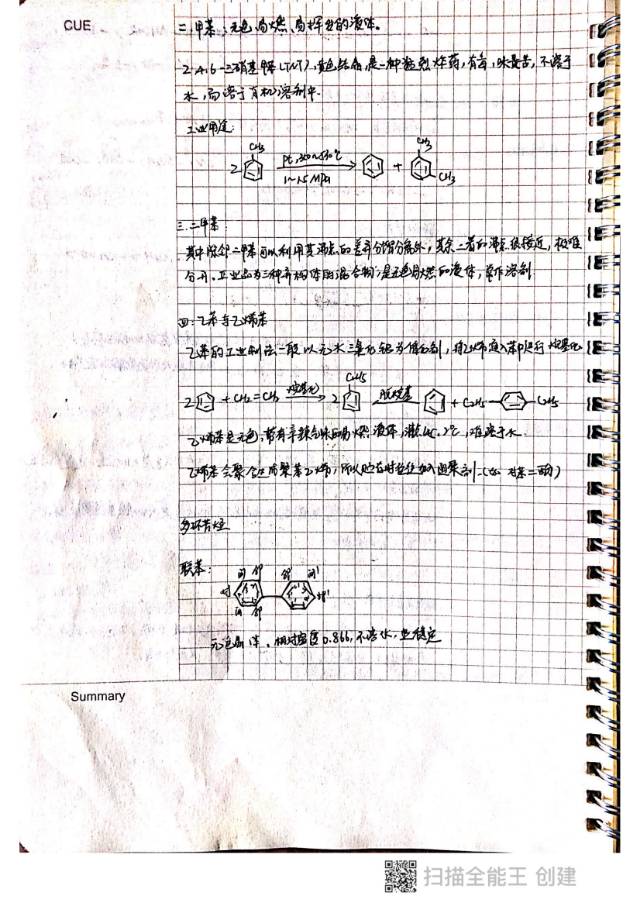 CUE
二. 甲苯：无色易燃、易挥发的液体。
2,4,6-三硝基甲苯(TNT), 黄色结晶,是一种猛烈炸药,有毒,味最苦,不溶于
水,而溶于有机溶剂中.
工业用途:
CH₃ CH₃
2 Pt, 350~530℃ +
1~1.5 MPa CH₃
三. 二甲苯:
其中除邻二甲苯可以利用其沸点的差异分馏分离外,其余二者的沸点很接近,极难
分开。工业品为三种异构体的混合物,是无色易燃的液体,
四: 乙苯与乙烯苯
乙苯的工业制法一般以无水三氯化铝为催化剂,将乙烯通入苯中进行烷基化
C₂H₅
2 + CH₂=CH₂ 烷基化 2 脱烷基 + C₂H₅ C₂H₅
乙烯苯是无色,带有辛辣气味的易燃液体,沸点 难溶于水.
乙烯苯会聚合成为聚苯乙烯,所以贮存时往往加入阻聚剂.(如 对苯二酚)
多环芳烃
联苯:
间 邻 邻' 间'
对 对'
间 邻
无色晶体, 相对密度0.866,不溶水,
Summary
扫描全能王 创建